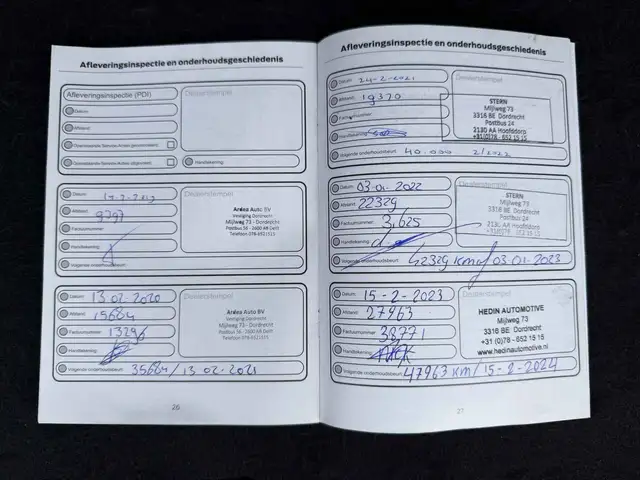 Afleveringsinspectie en onderhoudsgeschiedenis
Afleveringsinspectie (PDI)
Datum
Afstand
Handtekening
Dealerstempel
Datum
Afstand 9797
Factuurnummer
Handtekening
Volgende onderhoudsbeurt
Dealerstempel
Ardea Auto BV
Vestiging Dordrecht
Mijlweg 73 - Dordrecht
Postbus 56 - 2600 AB Delft
Telefoon 078-6521515
Datum 13 02-2020
Afstand 15684
Factuurnummer 13296
Handtekening
Volgende onderhoudsbeurt 35684 / 13 02-2021
Dealerstempel
Ardea Auto BV
Vestiging Dordrecht
Mijlweg 73 - Dordrecht
Postbus 56 - 2600 AB Delft
Telefoon 078-6521515
26
Afleveringsinspectie en onderhoudsgeschiedenis
Datum 24-2-2021
Afstand 19370
Factuurnummer
Handtekening
Volgende onderhoudsbeurt 40.000 2/2022
Dealerstempel
STERN
Mijlweg 73
3316 BE Dordrecht
Postbus 24
2130 AA Hoofddorp
+31(0)78 - 652 15 15
Datum 03-01-2022
Afstand 22329
Factuurnummer 3,625
Handtekening
Volgende onderhoudsbeurt 42329 KM of 03-01-2023
Dealerstempel
STERN
Mijlweg 73
3316 BE Dordrecht
Postbus 24
2130 AA Hoofddorp
+31(0)78 - 652 15 15
Datum 15-2-2023
Afstand 27963
Factuurnummer 38771
Handtekening
Volgende onderhoudsbeurt 47963 KM / 15-2-2024
Dealerstempel
HEDIN AUTOMOTIVE
Mijlweg 73
3316 BE Dordrecht
+31 (0)78 - 652 15 15
www.hedinautomotive.nl
27